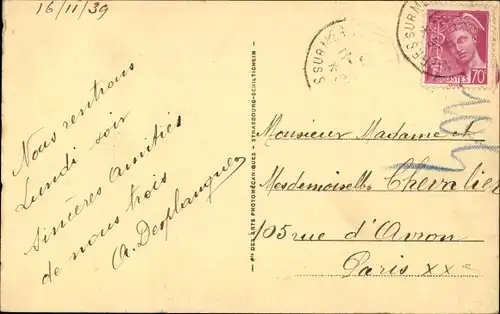 16/11/39
Nous rentrons
Lundi soir
Sincères amitiés
de nous trois
A. Desplanques
Cie DES ARTS PHOTOMÉCANIQUES - STRASBOURG-SCHILTIGHEIM
S SUR M
RES SUR M
POSTES 70c
Monsieur Madame et
Mesdemoiselles Chevalier
105 rue d'Avron
Paris XXe